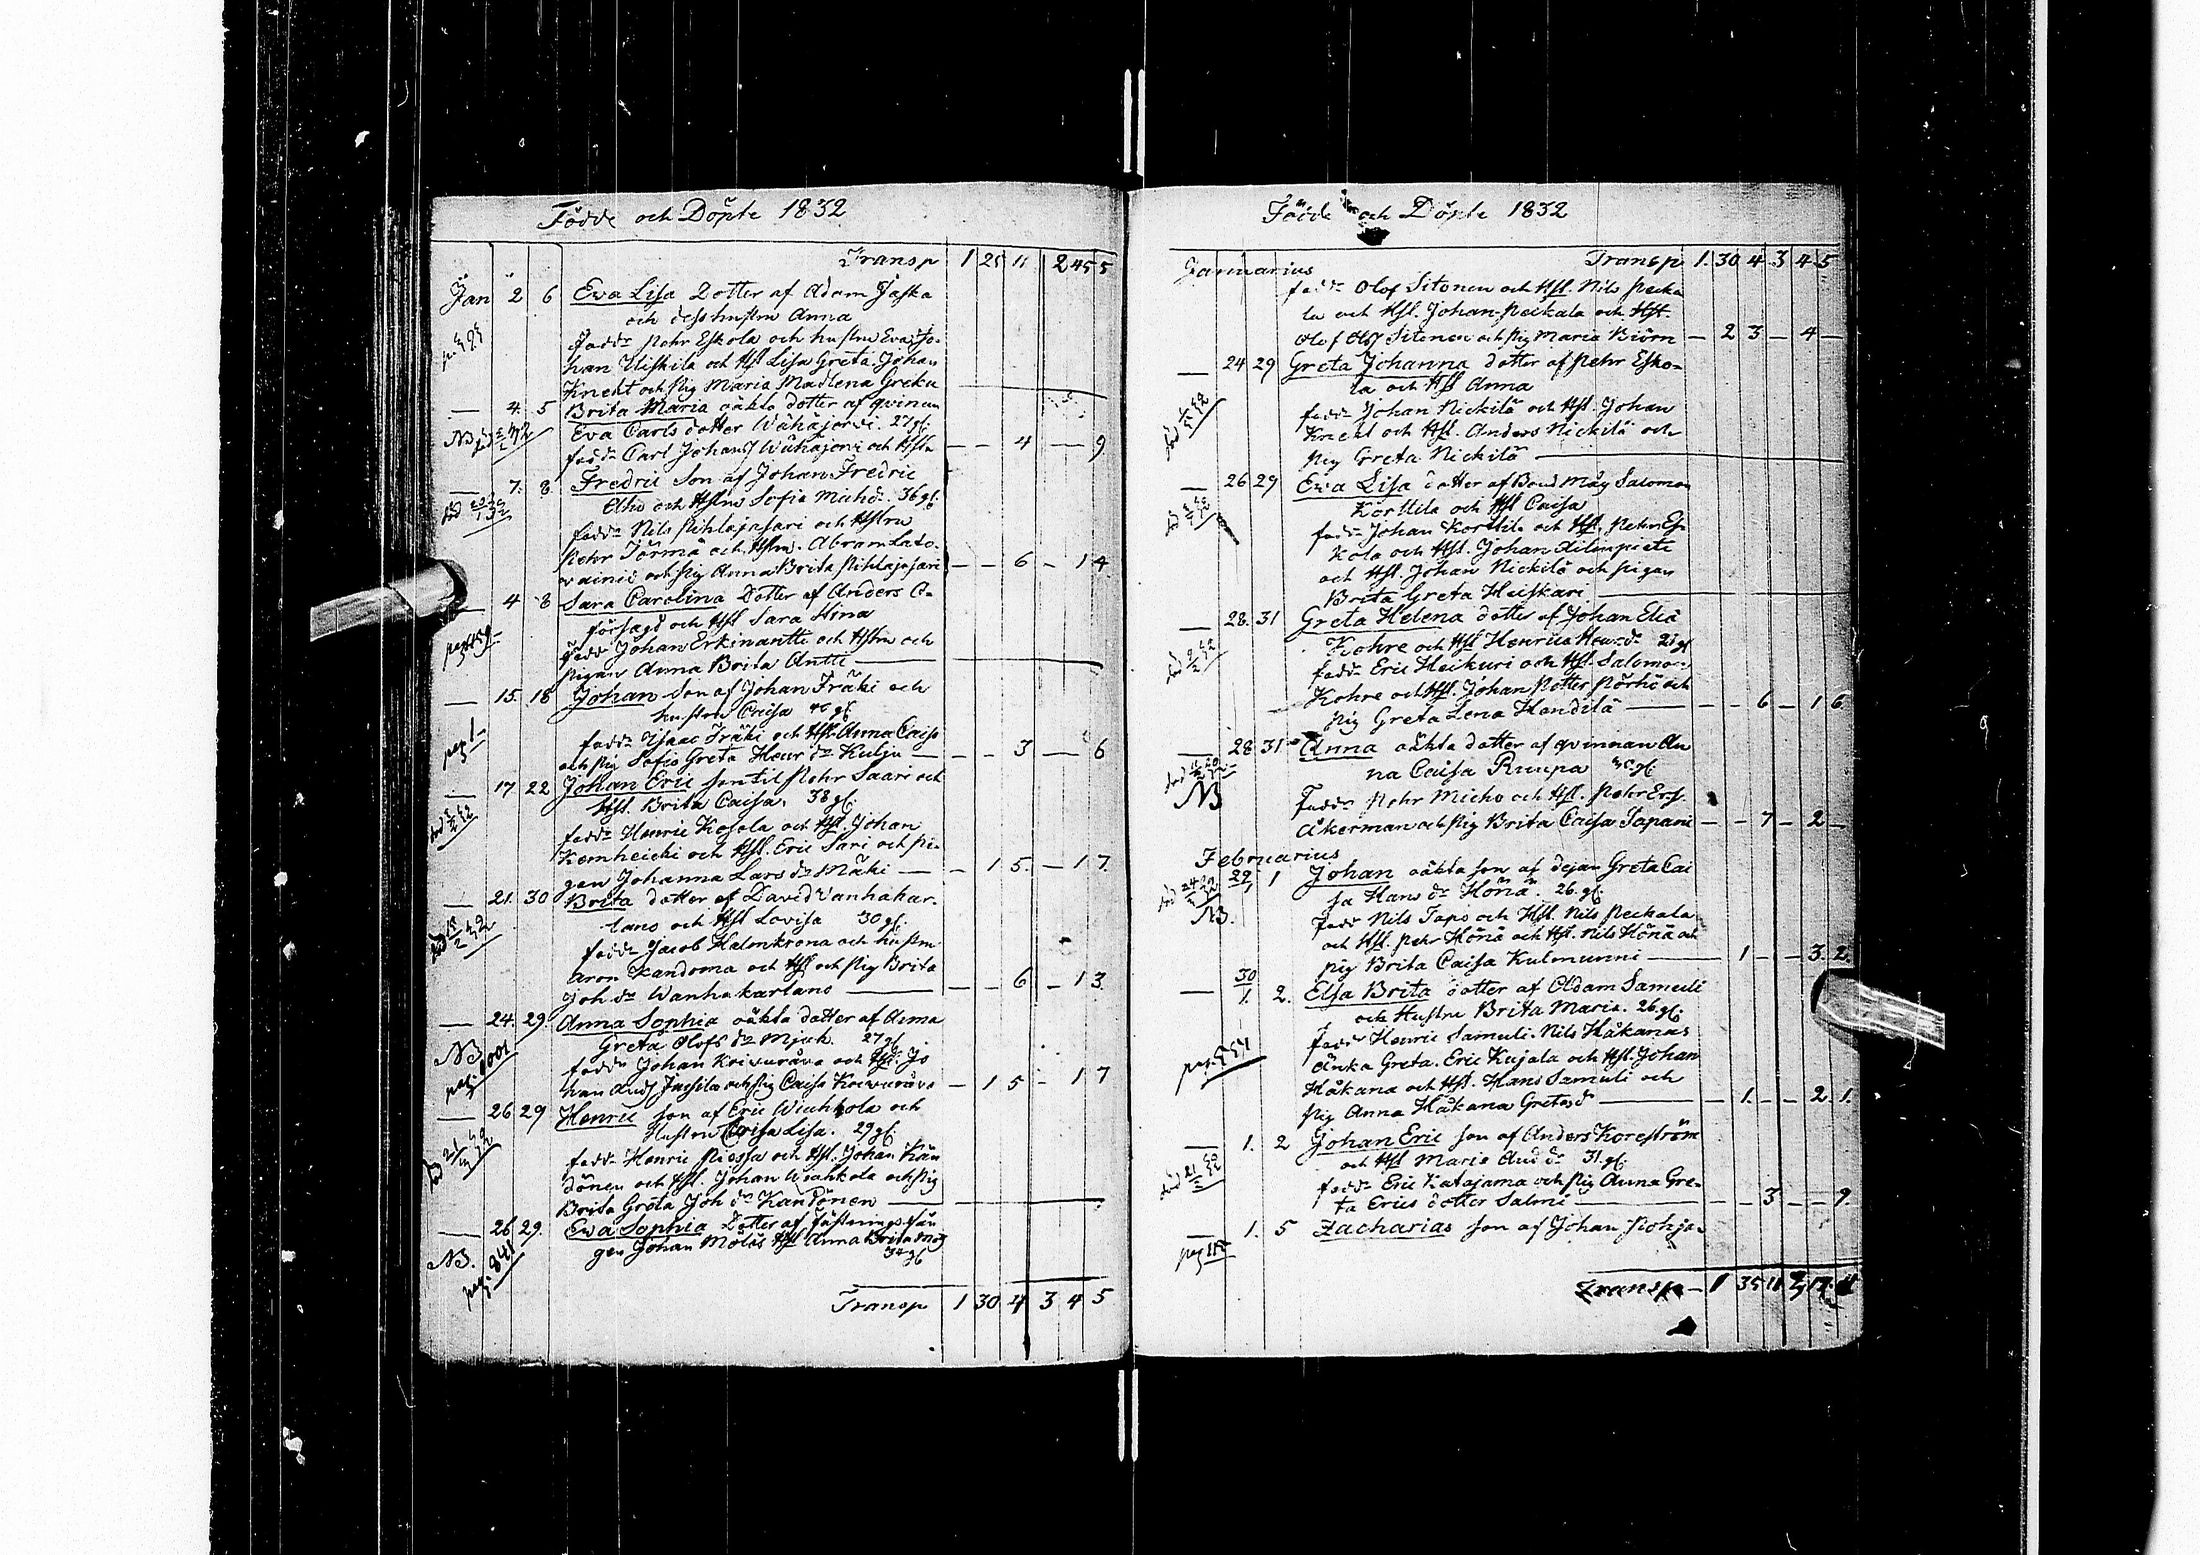 Födde och Döpte 1832
Transp 1 25 11 2 45 5
Jan 2 6 Eva Lisa Dotter af Adam Jaska
och dess hustru Anna
fadd: Pehr Eskola och hustru Eva, Jo-
han Uiskila och Hst Lisa Greta, Johan
Knekt och pig Maria Madlena Greku
4. 5 Brita Maria oäkta dotter af qvinnan
NB Eva Carls dotter Wähäjervi. 27 gl.
fadd: Carl Johans Wähäjervi och Hstu — — 4 — 9
7. 8 Fredric Son af Johan Fredric
och Hstru Sofia Michsd. 36 gl.
fadd: Nils Pihlajasari och Hstru
Pehr Törmä och Hstru. Abram Lato-
wainio och pig Anna Brita Pihlajasari — — 6 — 14
4 8 Sara Carolina Dotter af Anders
och Hst Sara Stina
fadd: Johan Erkinantti och Hstru och
pigan Anna Brita Antti
15. 18 Johan Son af Johan Träki och
pag 1 hustru Caisa 40 gl.
fadd: Isaac Träki och Hst Anna Caisa
och pig Sofia Greta Henr dr Kulju — — 3 — 6
17 22 Johan Eric son til Pehr Saari och
Hst. Brita Caisa. 38 gl.
fadd: Henric Kosola och Hst Johan
Kernheicki och Hst. Eric Sari och pi-
gan Johanna Lars dr Mäki — — 1 5. — 17.
21. 30 Brita dotter af David Vanhakar-
tano och Hst Lovisa 30 gl.
fadd: Jacob Halmkrona och hustru
Aron Kandoma och Hst och pig Brita
Joh dr Wanhakartano — — 6 — 13
24. 29. Anna Sophia oäkta dotter af Anna
NB Greta Olofs dr Mjuk. 27 gl.
pag. 1001 fadd: Johan Koivuråva och Hst: Jo
han And Jussila och pig Caisa Koivuråva — 1 5 — 17
26 29 Henric son af Eric Wiahkola och
Hustru Caisa Lisa. 29 gl.
fadd: Henric Piessa och Hst. Johan Kän
dönen och Hst. Johan Wiahkola och pig
Brita Greta Joh dr Kandönen
26 29. Eva Sophia Dotter af fästnings fån
NB. gen Johan Mölas Hst Anna Brita
pag. 841 34 gl
Transp 1 30 4 3 4 5
Födde och Döpte 1832
Januarius Transp 1. 30 4 3 4 5
fadd: Olof Sitonen och Hst. Nils Pecka
la och Hst. Johan Peckala och Hst.
Olof Olofs Sitonen och pig Maria Björn — 2 3 — 4 —
24 29 Greta Johanna dotter af Pehr Esko-
la och Hst Anna
fadd: Johan Nickilä och Hst. Johan
Knekt och Hst. Anders Nickilä och
pig Greta Nickilä
26 29 Eva Lisa dotter af Bond Måg Salomon
Korttila och Hst Caisa
fadd: Johan Korttila och Hst. Pehr Es-
kola och Hst. Johan Kilinpieti
och Hst. Johan Nickilä och pigan
Brita Greta Heiskari
28. 31 Greta Helena dotter af Johan Elia
Kohre och Hst Henrica Henr. dr
fadd: Eric Heickuri och Hst. Salomon
Kohre och Hst. Johan Petter Pörhö och
pig Greta Lena Handilä — — 6 — 1 6
28 31 Anna oäkta dotter af qvinnan An
NB na Caisa Ruupa
Fadd: Pehr Micho och Hst. Pehr Ers.
Åkerman och pig Brita Caisa Sapani — — 7 — 2 —
Februarius
29/1 1 Johan oäkta son af dejan Greta Cai
NB. sa Hans dr Hönä. 26 gl.
fadd: Nils Tapo och Hst. Nils Peckala
och Hst. Pehr Hönä och Hst. Nils Hönä och
pig Brita Caisa Kulmunni — 1 — — 3 2.
30/1. 2. Elsa Brita dotter af Adam Samuli
och Hustru Brita Maria. 26 gl.
fadd: Henric Samuli. Nils Håkanas
änka Greta. Eric Kujala och Hst. Johan
Håkana och Hst. Hans Samuli och
pig Anna Håkana Gretasd — 1. — — 2. 1.
1. 2 Johan Eric son af Anders Koreström
och Hst Maria And dr 31. gl.
fadd: Eric Katajama och pig Anna Gre-
ta Erics dotter Salmi — — 3 — — 9.
1. 5 Zacharias son af Johan Pohja-
Transp — 1 35 11